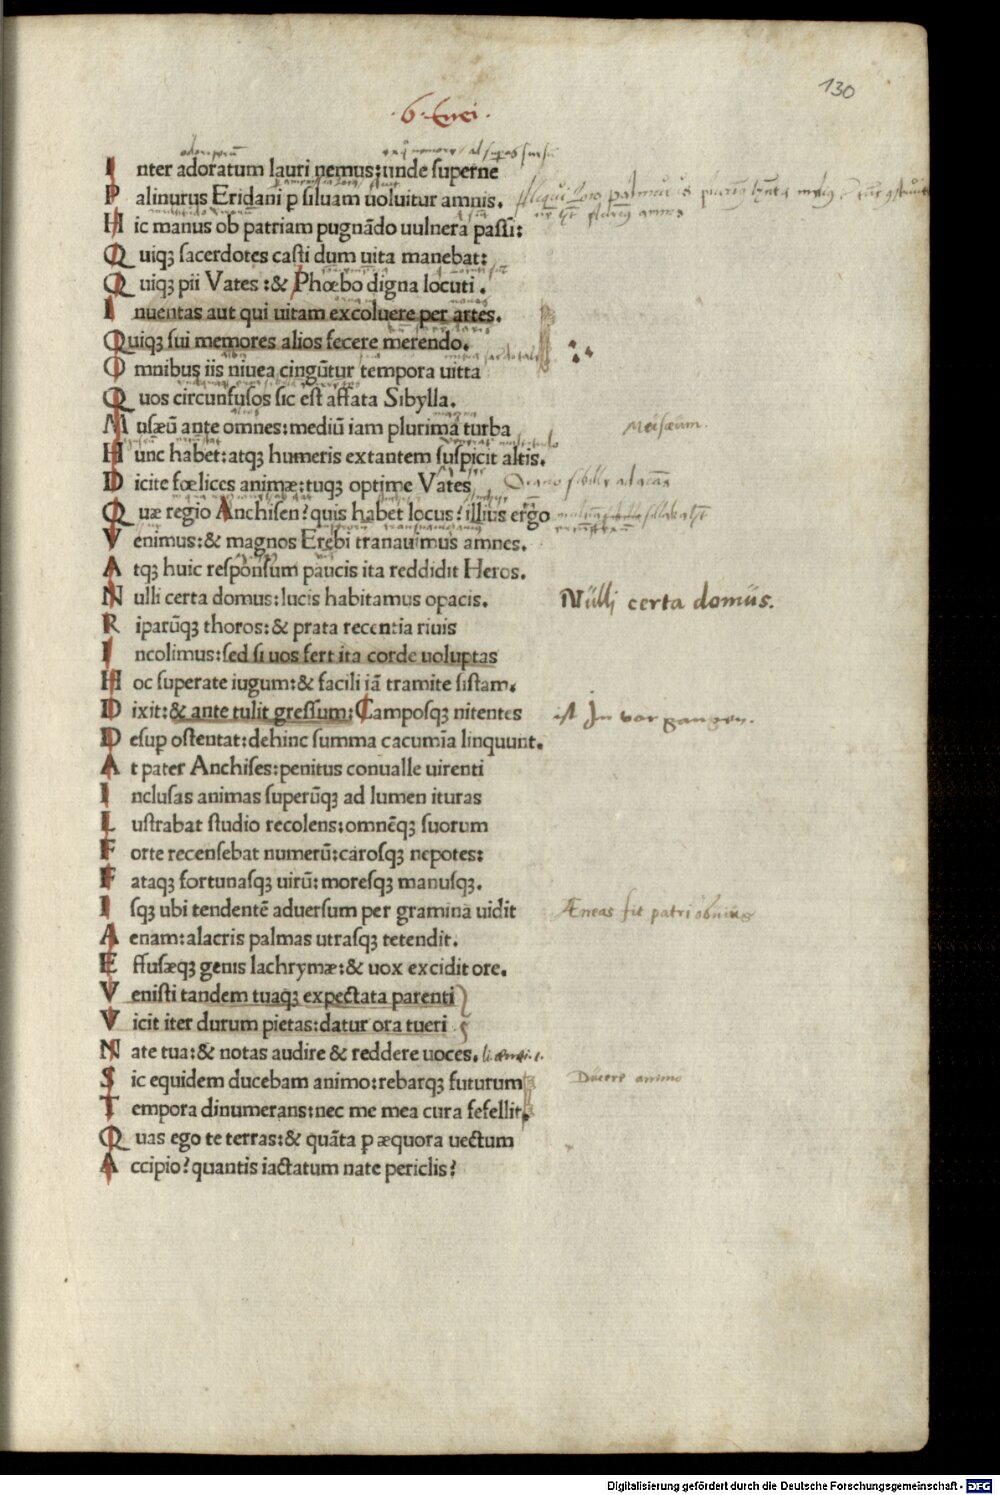 130
·6· Enei·
Inter adoratum lauri nemus: unde superne
Palinurus Eridani p siluam uoluitur amnis.
Hic manus ob patriam pugnãdo uulnera passi:
Quiqꝫ sacerdotes casti dum uita manebat:
Quiqꝫ pii Vates: & Phœbo digna locuti.
Inuentas aut qui uitam excoluere per artes.
Quiqꝫ sui memores alios fecere merendo.
Omnibus iis niuea cingũtur tempora uitta
Quos circunfusos sic est affata Sibylla.
Musæũ ante omnes: mediũ iam plurima turba
Musæum.
Hunc habet: atqꝫ humeris extantem suspicit altis.
Dicite fœlices animæ: tuqꝫ optime Vates
Quæ regio Anchisen? quis habet locus? illius ergo
Venimus: & magnos Erebi tranauimus amnes.
Atqꝫ huic responsum paucis ita reddidit Heros.
Nulli certa domus: lucis habitamus opacis.
Nulli certa domus.
Riparũqꝫ thoros: & prata recentia riuis
Incolimus: sed si uos fert ita corde uoluptas
Hoc superate iugum: & facili iã tramite sistam.
Dixit: & ante tulit gressum: Camposqꝫ nitentes
ist Jn vor gangen.
Desup ostentat: dehinc summa cacumĩa linquunt.
At pater Anchises: penitus conualle uirenti
Inclusas animas superũqꝫ ad lumen ituras
Lustrabat studio recolens: omnẽqꝫ suorum
Forte recensebat numerũ: carosqꝫ nepotes:
Fataqꝫ fortunasqꝫ uirũ: moresqꝫ manusqꝫ.
Isqꝫ ubi tendentẽ aduersum per gramina uidit
Æneas fit patri obuius
Aenam: alacris palmas utrasqꝫ tetendit.
Effusæqꝫ genis lachrymæ: & uox excidit ore.
Venisti tandem tuaqꝫ expectata parenti
Vicit iter durum pietas: datur ora tueri
Nate tua: & notas audire & reddere uoces.
Sic equidem ducebam animo: rebarqꝫ futurum
Ducere animo
Tempora dinumerans: nec me mea cura fefellit.
Quas ego te terras: & quãta p æquora uectum
Accipio? quantis iactatum nate periclis?
Digitalisierung gefördert durch die Deutsche Forschungsgemeinschaft - DFG